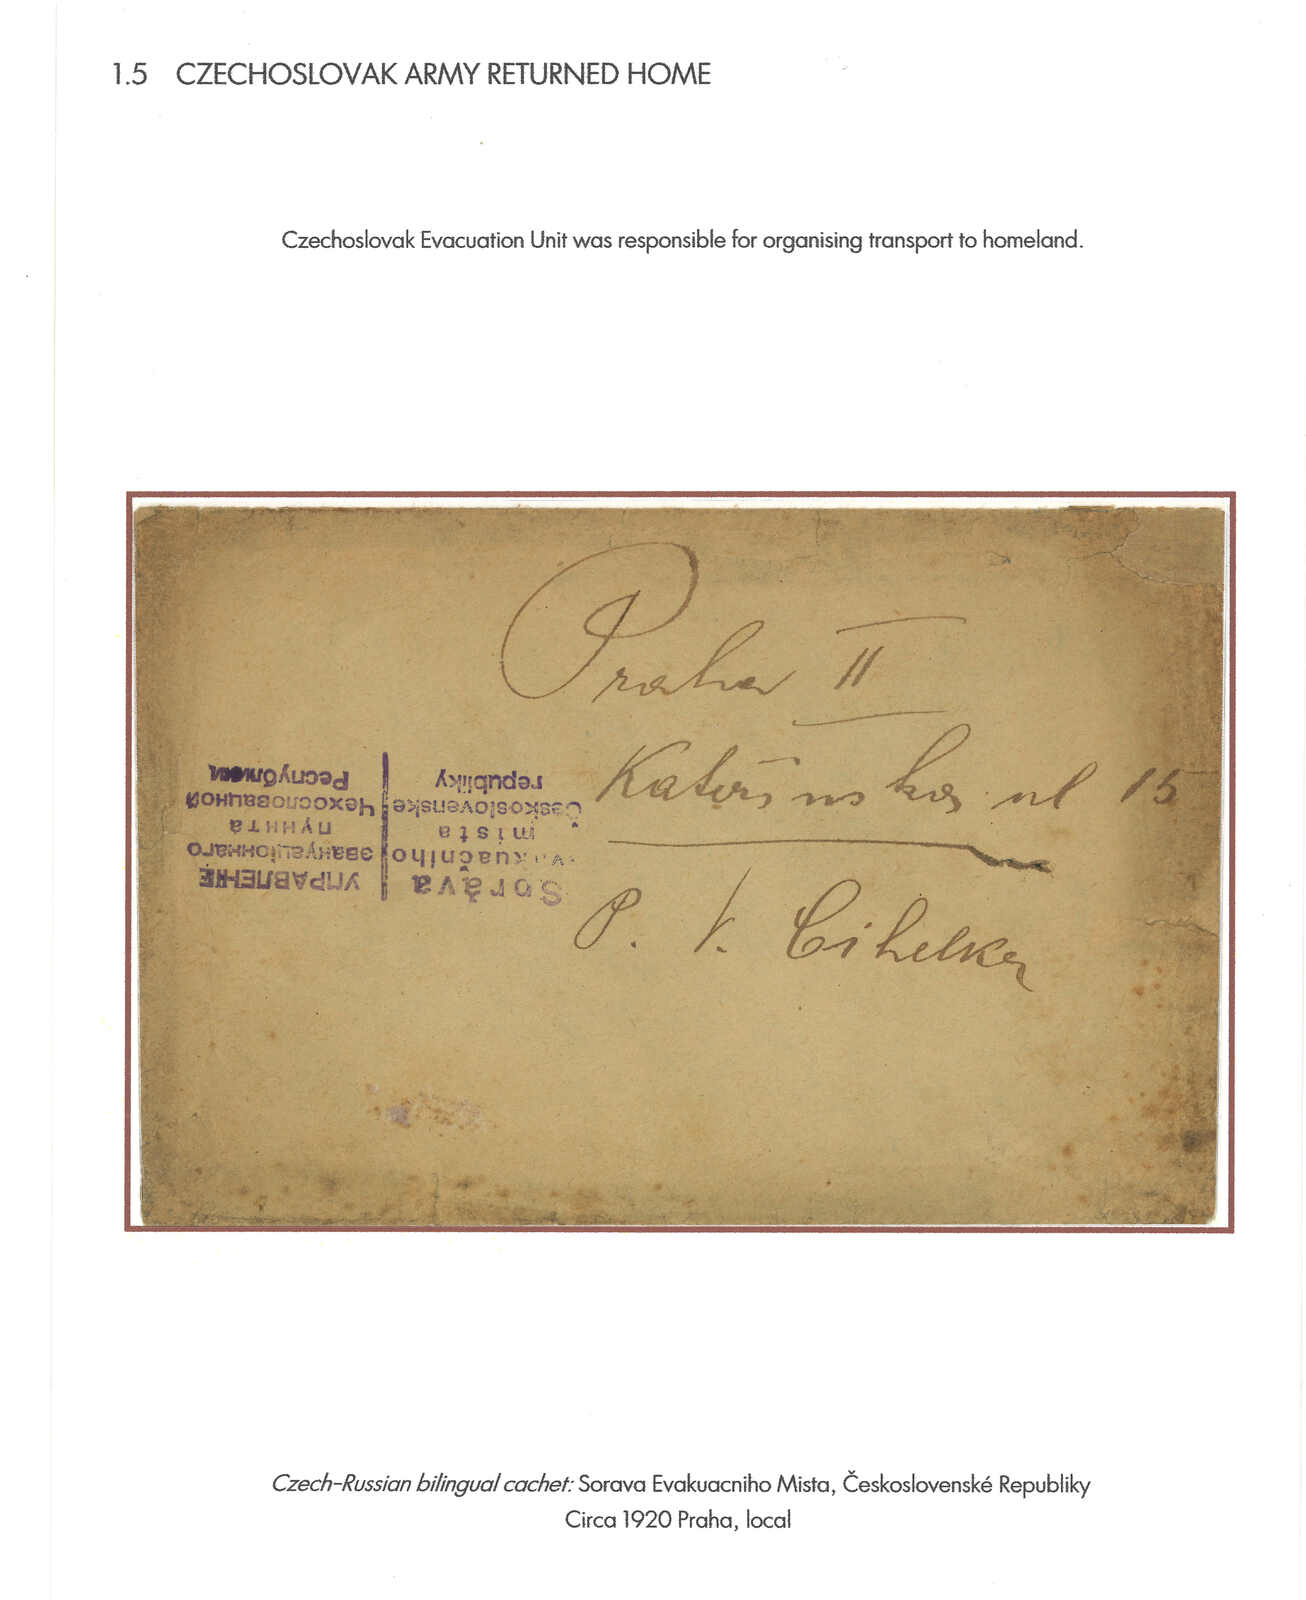 1.5 CZECHOSLOVAK ARMY RETURNED HOME
Czechoslovak Evacuation Unit was responsible for organising transport to homeland.
Praha II
Kateřinska ul 15
P. V. Cihelka
Soráva
Evakuačního
místa
Československé
republiky
УПРАВЛЕНІЕ
эвакуаціоннаго
пункта
Чехословацкой
Республики
Czech-Russian bilingual cachet: Sorava Evakuacniho Mista, Československé Republiky
Circa 1920 Praha, local